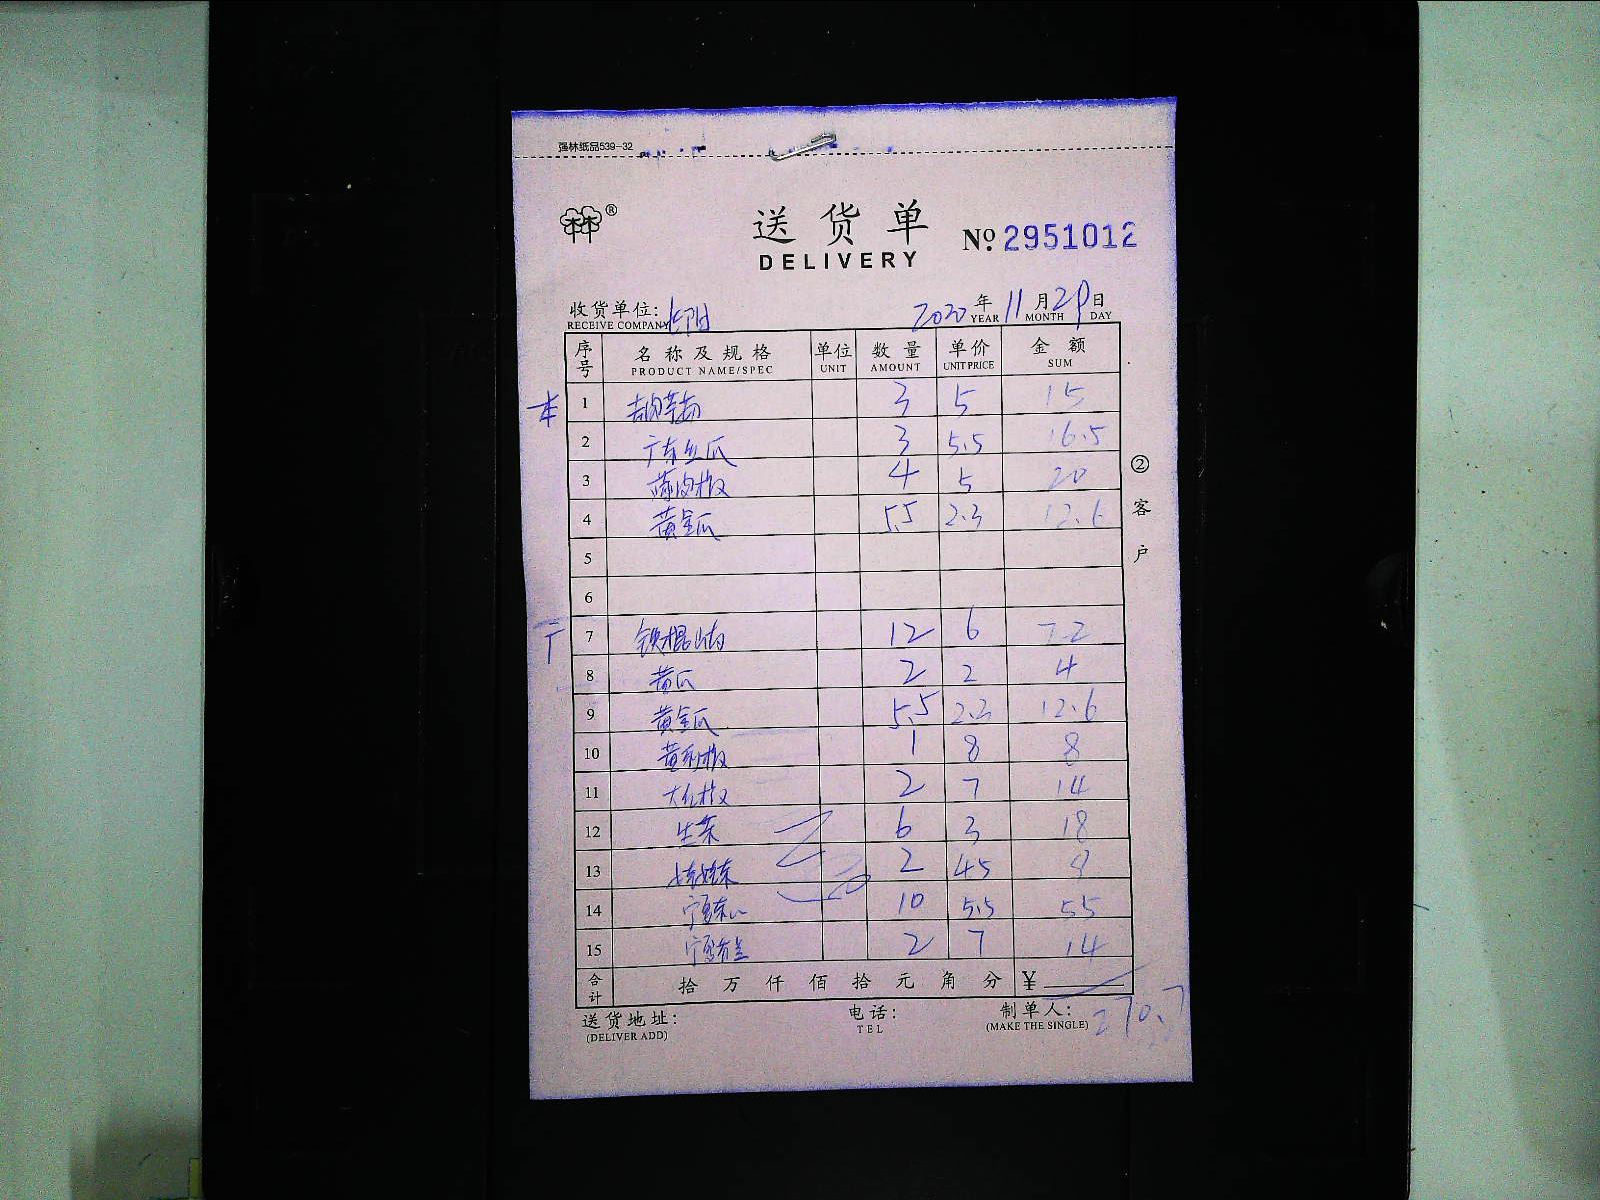 强林纸品539-32
林®
送货单
DELIVERY
№ 2951012
收货单位:
RECEIVE COMPANY
2020 年 11 月 29 日
YEAR MONTH DAY
序号 名称及规格 单位 数量 单价 金额
PRODUCT NAME/SPEC UNIT AMOUNT UNIT PRICE SUM
1 3 5 15
2 广东丝瓜 3 5.5 16.5
3 薄肉椒 4 5 20
4 黄金瓜 5.5 2.3 12.6
5
6
7 铁棍山药 12 6 72
8 黄瓜 2 2 4
9 黄金瓜 5.5 2.3 12.6
10 1 8 8
11 大红椒 2 7 14
12 生菜 6 3 18
13 2 4.5 9
14 10 5.5 55
15 2 7 14
合计 拾 万 仟 佰 拾 元 角 分 ¥
270.7
送货地址: 电话: 制单人:
(DELIVER ADD) TEL (MAKE THE SINGLE)
② 客户